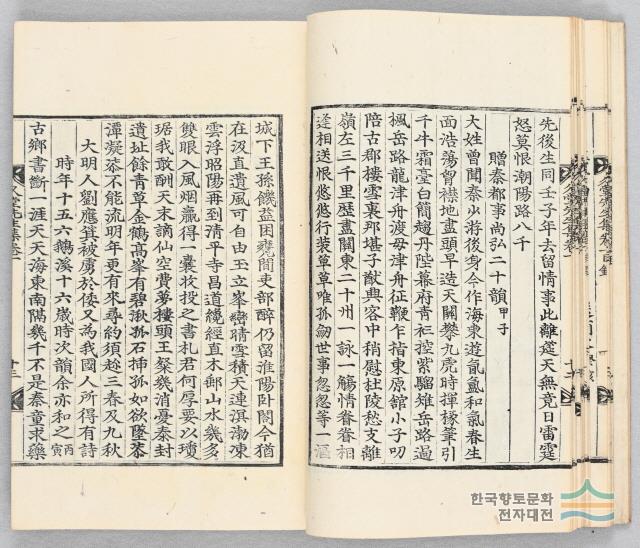 先後生同壬子年去留情事此離筵天無竟日雷霆
怒莫恨潮陽路八千
贈秦都事尚弘二十韻甲子
大姓曾聞秦少游後身今作海東遊氤氳和氣春生
面浩蕩曾襟地盡頭早造天關攀九虎時揮椽筆引
千牛霜臺白簡趨丹陛幕府青衫控紫騮雉岳路過
楓岳路龍津舟渡毋津舟征鞭乍指東原舘小子叨
陪古郡樓雪裏那堪子猷興客中稍慰杜陵愁支離
嶺左三千里歷盡關東二十州一詠一觴情眷眷相
逢相送恨悠悠行装草草唯孤劒世事忽忽等一漚
城下王孫饑益困甕間吏部醉仍留淮陽卧閤今猶
在汲直遺風可自由玉立峯巒晴雪積天連溟渤凍
雲浮昭陽再到清平寺昌道纔經直木郵山水幾多
雙眼入風烟羸得一囊收投之書札君何厚要以瓊
琚我敢酬天末謫仙空費夢樓頭王粲幾消憂泰封
遺址餘青草金鶴高峯有碧湫孤石揷孤如欲墜蔡
潭凝蔡不能流明年更有來尋約須趁三春及九秋
大明人劉應箕被虜於倭又為我國人所得有詩
時年十五六鵝溪十六歲時次韻余亦和之丙寅
古鄉書斷一涯天天海東南隔幾千不是秦童求藥
十三
한국향토문화
전자대전